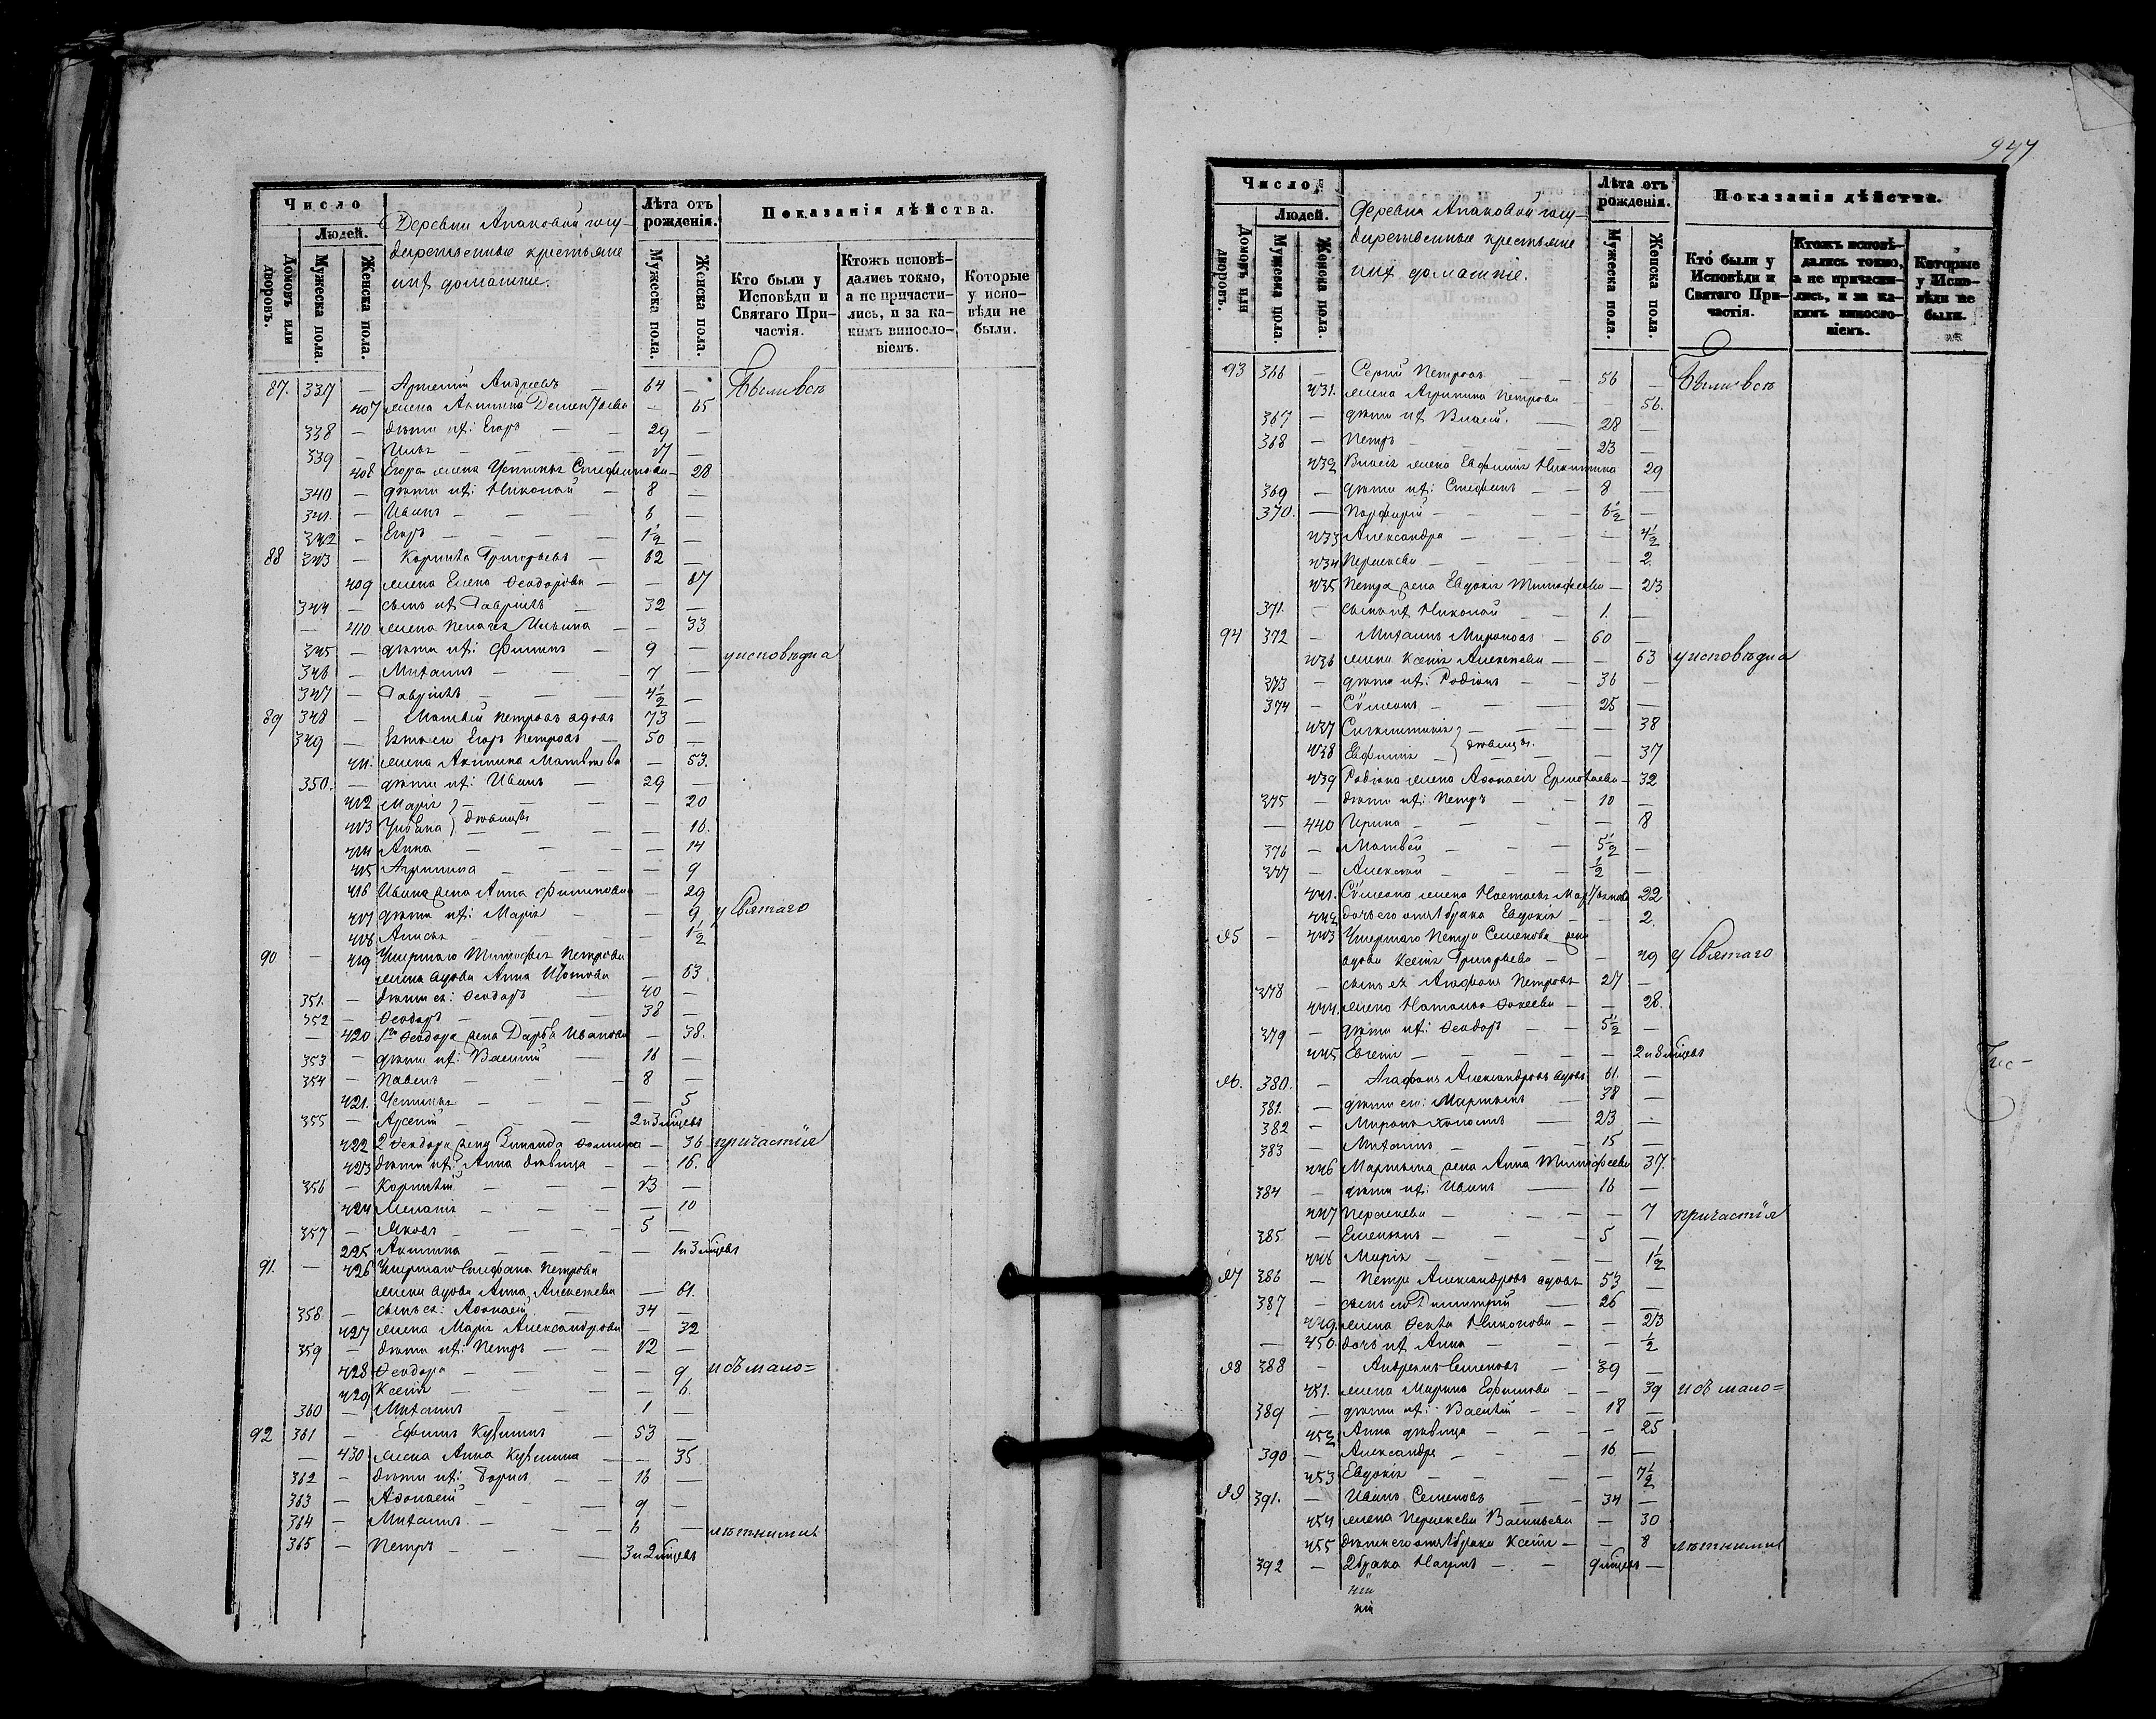 Число
Людей.
Домовъ или дворовъ.
Мужеска пола.
Женска пола.
Деревни Апаковой госу-
дарственные крестьяне
и ихъ домашніе.
Лѣта отъ рожденія.
Мужеска пола.
Женска пола.
Показанія дѣйства.
Кто были у Исповѣди и Святаго Причастія.
Ктожъ исповѣдались токмо, а не причастились, и за какимъ винословіемъ.
Которые у исповѣди не были.
87. 337 — Артемій Андреевъ — 64 — Были всѣ
407 жена Акилина Дементьева — 65
338 — дѣти ихъ: Егоръ — 29 —
339 —
408 Егора жена Устинья Стефанова — 28
340 — дѣти ихъ: Николай — 8 —
341. — Иванъ — 6 —
342 — Егоръ — 1½ —
88 343 — Корнилъ Григорьевъ — 62 —
409 жена Елена Ѳеодорова — 67
344 — сынъ ихъ Гавріилъ — 32 —
— 410 жена Пелагея Ильина — 33
345 — дѣти ихъ: Филипъ — 9 — у исповѣди
346 — Михаилъ — 7 —
347 — Гавріилъ — 4½ —
89 348 — Матвѣй Петровъ вдовъ 73 —
349 — Егоръ Петровъ — 50 —
411. жена Акилина Матвѣева — 53.
350. — дѣти ихъ: Иванъ — 29 —
412 Марія — 20
413 девицы — 16.
414 Анна — 14
415 Агрипина — 9
416 Ивана жена Анна Филипова — 29
417 дѣти ихъ: Марія — 9 у Святаго
418 — 1½
90 — 419 Умершаго Тимофея Петрова
жена вдова Анна — 63.
351. — дѣти ея: Ѳеодоръ — 40 —
352 — Ѳеодоръ — 38 —
— 420 1го Ѳеодора жена Дарья Иванова — 38.
353 — дѣти ихъ: Василій — 16 —
354 — Павелъ — 8 —
421. Устинья — 5
355 — Арсеній — 2 и 3 мѣсяцевъ
422 2 Ѳеодора жена Зиновія Ѳомина — 36 причастія
423 дѣти ихъ: Анна дѣвица — 16.
356 — Корнилій — 13 —
424 Меланія — 10
357 — Яковъ — 5 —
225 Акилина — 1 и 3 мѣсяцевъ
91. — 426 Умершаго Стефана Петрова
жена вдова Анна Алексѣева — 61.
358 — сынъ ея: Аѳонасій — 34 —
427 жена Марія Александрова — 32
359 — дѣти ихъ: Петръ — 12 —
428 Ѳеодора — 9 и съ мало=
429 Ксенія — 6.
360 — Михаилъ — 1 —
92 361 — Ефимъ Кузьминъ — 53 —
— 430 жена Анна Кузьмина — 35
362 — дѣти ихъ: Борисъ — 16 —
363 — Аѳонасій — 9 —
364 — Михаилъ — 6 — лѣтними
365 — Петръ — 3 и 2 мѣсяцевъ
Число
Людей.
Домовъ или дворовъ.
Мужеска пола.
Женска пола.
Деревни Апаковой госу-
дарственные крестьяне
и ихъ домашніе.
Лѣта отъ рожденія.
Мужеска пола.
Женска пола.
Показанія дѣйства.
Кто были у Исповѣди и Святаго Причастія.
Ктожъ исповѣдались токмо, а не причастились, и за какимъ винословіемъ.
Которые у Исповѣди не были.
93 366 — Сергій Петровъ — 56 — Были всѣ
431. жена Агрипина Петрова — 56.
367 — дѣти ихъ Власій. — 28 —
368 — Петръ — 23 —
432 Власія жена Евфимія Никитина 29
369 — дѣти ихъ: Стефанъ — 8 —
370. — Порфирій — 6½ —
433 Александра — 4½
434 Перасковья — 2.
435 Петра жена Евдокія Тимофеева — 23
371. — сынъ ихъ Николай — 1. —
94 372 — Михаилъ Мироновъ — 60 —
436 жена Ксенія Алексѣева — 63 у исповѣди
373 — дѣти ихъ: Родіонъ — 36 —
374 — Сѵмеонъ — 25 —
437 Сигклитикія — 38
438 Евфимія — девицы. — 37
439 Родіона жена Аѳонасія Ермолаева — 32
375 — дѣти ихъ: Петръ — 10 —
— 440 Ирина — 8
376 — Матвей — 5½ —
377 — Алексѣй — ½ —
441. Сѵмеона жена Настасья 22
442 дочь его отъ 1 брака Евдокія — 2.
95 — 443 Умершаго Петра Семенова жена
вдова Ксенія Григорьева — 49 у Святаго
378 — сынъ ея Агафонъ Петровъ 27 —
444. жена Наталья Фокеева — 28.
379 — дѣти ихъ: Ѳеодоръ — 5½ —
445 Евгенія — 2 и 8 мѣсяцевъ
96. 380. — Агафонъ Александровъ вдовъ 61. —
381. — дѣти его: Мартынъ — 38 —
382 — Миронъ холостъ — 23 —
383 — Михаилъ — 15 —
446 Мартына жена Анна Тимофеева 37.
384 — дѣти ихъ: Иванъ — 16 —
447 Перасковья — 7 причастія
385 — Емельянъ — 5 —
448 Марія — 1½
97 386 — Петръ Александровъ вдовъ 53 —
387 — сынъ его Димитрій — 26 —
449. жена Ѳекла Никонова — 23
— 450. дочь ихъ Анна — ½
98 388 — Андреянъ Семеновъ — 39 —
451. жена Марина Ефимова — 39 и съ мало=
389 — дѣти ихъ: Василій — 18 —
452 Анна дѣвица — 25
390 — Александръ — 16 —
453 Евдокія — 7½
99 391. — Иванъ Семеновъ — 34 —
454 жена Перасковья Васильева — 30
455 дѣти его отъ 1 брака Ксенія — 8 лѣтними
392 — 2 брака Наумъ — 9 мѣсяцевъ —